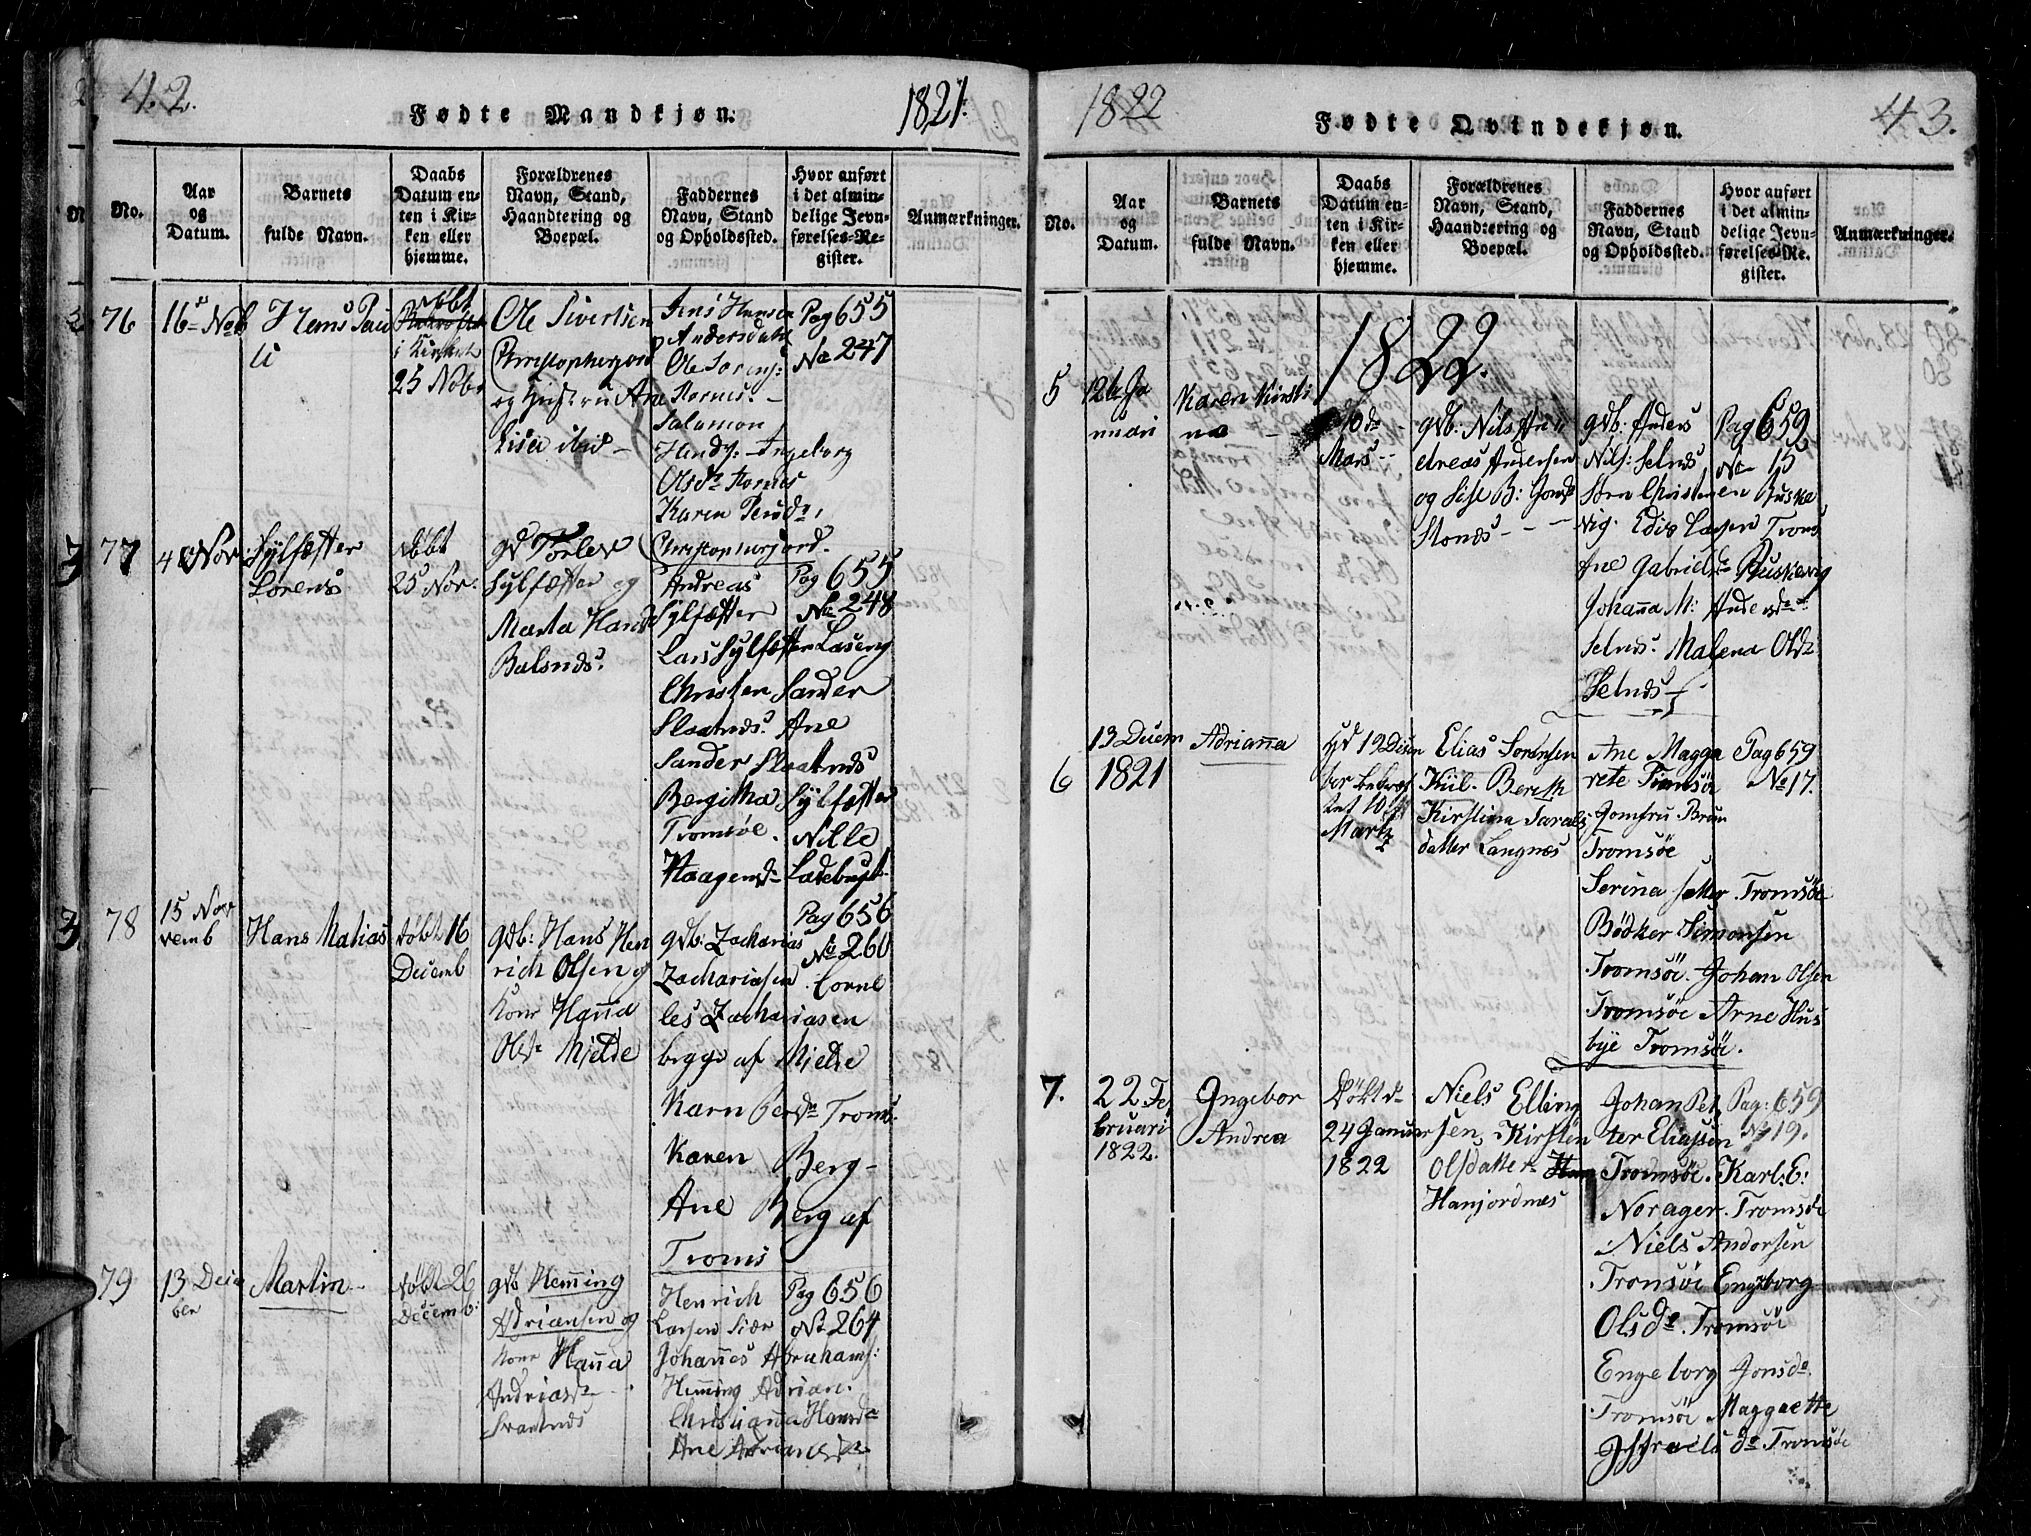 42.
Fødte Mandkjøn.
1821.
No.
Aar
og
Datum.
Barnets
fulde Navn.
Daabs
Datum en-
ten i Kir-
ken eller
hjemme.
Forældrenes
Navn, Stand,
Haandtering og
Boepæl.
Faddernes
Navn, Stand
og Opholdssted.
Hvor anført
i det almin-
delige Jevn-
førelses-Re-
gister.
Anmærkninger.
76
16 Nob
Hans Pau
li
døbt
i Kirken
25 Nobr
Ole Sivertsen
Christophersjord
og Hustru Ane
Lisa ibid
Jens Hansen
Andersdahl
Ole Sorens:
Hornes.
Salamon
Hendr: Ingeborg
Olsdr Hornes
Karen Persdr
Christophersjord.
Pag 655
No 247
77
4 Nov
Sylfæster
Lorens
døbt
25 Nov:
gd Torlev
Sylfæster og
Marta Hansd
Balsnds.
Andreas
Sylfæster
Lars Sylfæster Laseng
Christen Sander
Slaatnds. Ane
Sander Slaatnds
Bergitha Sylfæster
Tromsöe. Nille
Haagensdr Ladebugt
Pag 655
No 248
78
15 Nov
vemb
Hans Matias
døbt 16
Decemb
gdb: Hans Hen
rich Olsen og
Kone Hanna
Olsdr Mjelde
gdb: Zacharias
Zachariasen Corne
les Zachariasen
begge af Mjelde
Karn Persdr Troms.
Karen Berg
Ane Berg af
Troms
Pag 656
No 260
79
13 Decem
ber
Martin
døbt 26
Decemb:
gdb Hemming
Adriansen og
Kone Hanna
Andriasdr
Svartnds
Henrich
Larsen
Johannes Abrahams:
Hemming Adrian.
Christianna Hansdr
Ane Adriansdr
Pag 656
No 264
1822
Fødte Qvindekjøn.
43.
No.
Aar
og
Datum.
Barnets
fulde Navn.
Daabs
Datum en-
ten i Kir-
ken eller
hjemme.
Forældrenes
Navn, Stand,
Haandtering og
Boepæl.
Faddernes
Navn, Stand
og Opholdssted.
Hvor anført
i det almin-
delige Jevn-
førelses-Re-
gister.
Anmærkninger.
1822.
5
12 Ja
nuari
Karen Kirsti
na
Mars
gdb: Nils An
dreas Andersen
og Sise B: Jonsd
Stonds
gdb: Anders
Nils: Selnds
Sten Christensen Buske
vig. Edis Larsen Troms
Ane Gabrielsdr Buskevig
Johanna M: Andersdr
Selnds. Malena Olsdr
Selnds
Pag 659
No 15
6
13 Decem
1821
Adrianna
Hd 19 Decem
ber bekræf
tet 10
Martz
Elias Sorensen
Kiil. Bereth
Kirstina Sarals
datter Langnæs
Ane Magga
rete Tromsöe
Jomfru Brun
Tromsöe
Serina Tromsöe
Bödker Simonsen
Tromsöe. Johan Olsen
Tromsöe Arne Hus
bye Tromsöe.
Pag 659
No 17.
7.
22 Fe
bruari
1822.
Ingebor
Andrea
Döbt d
24 Januar
1822
Niels Elling
sen, Kirsten
Olsdatter
Hanjordnæs
Johan Pet
ter Eliassen
Tromsöe. Karl: E:
Norager. Tromsöe
Niels Andersen
Tromsöe Engeborg
Olsdr. Tromsöe
Engeborg Jonsdr.
Tromsöe Maggrette
Issraels dr Tromsöe
Pag: 659
No 19.